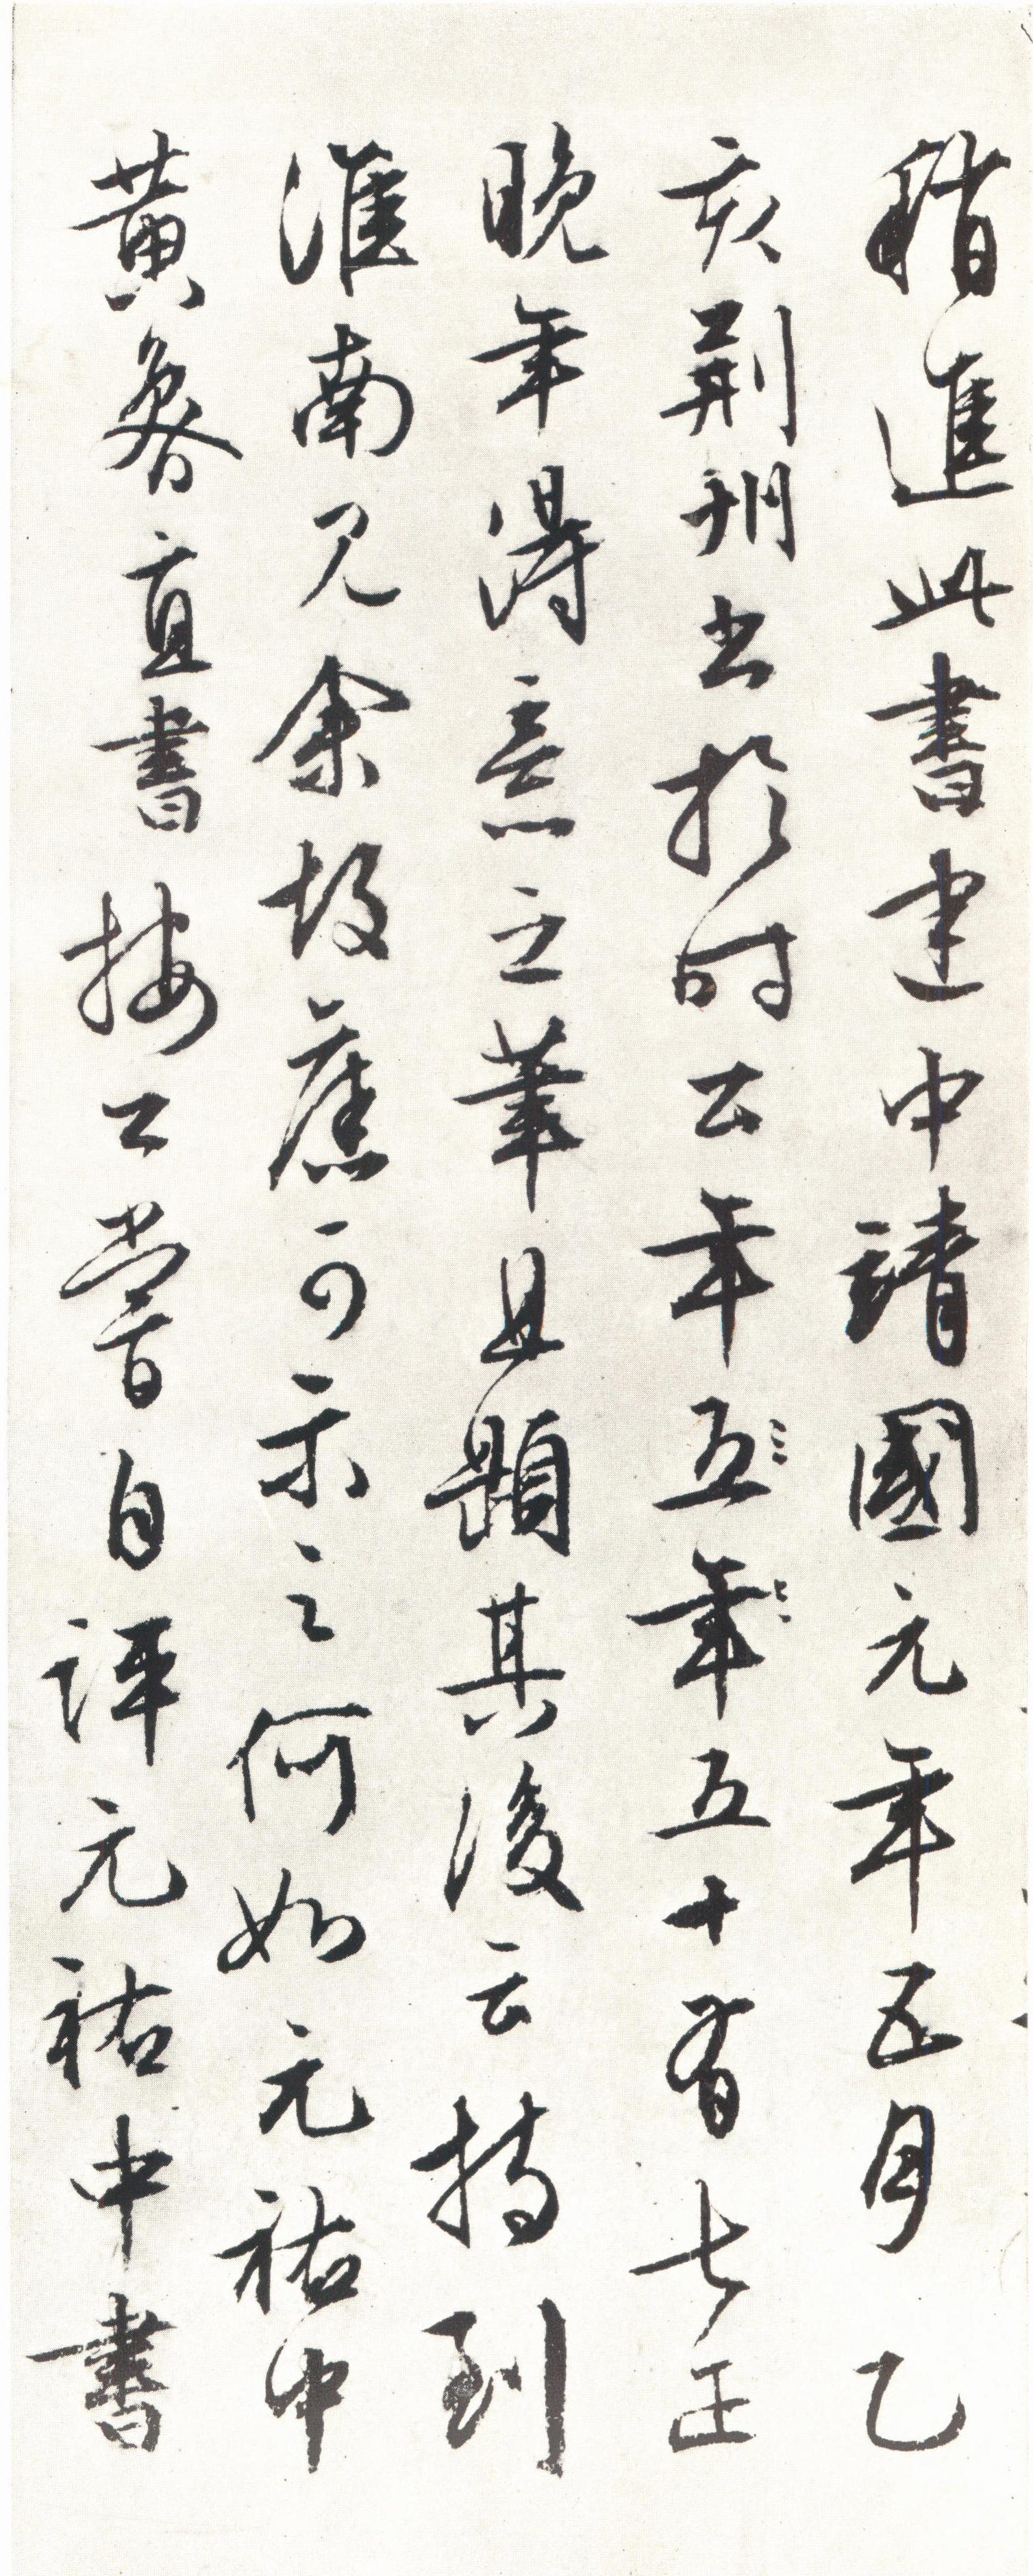 稍進此書建中靖國元年五月乙
亥荆州書於時公年五年五十有七正
晚年得意之筆且題其後云持到
淮南見余故舊可示之何如元祐中
黄魯直書按公嘗自評元祐中書